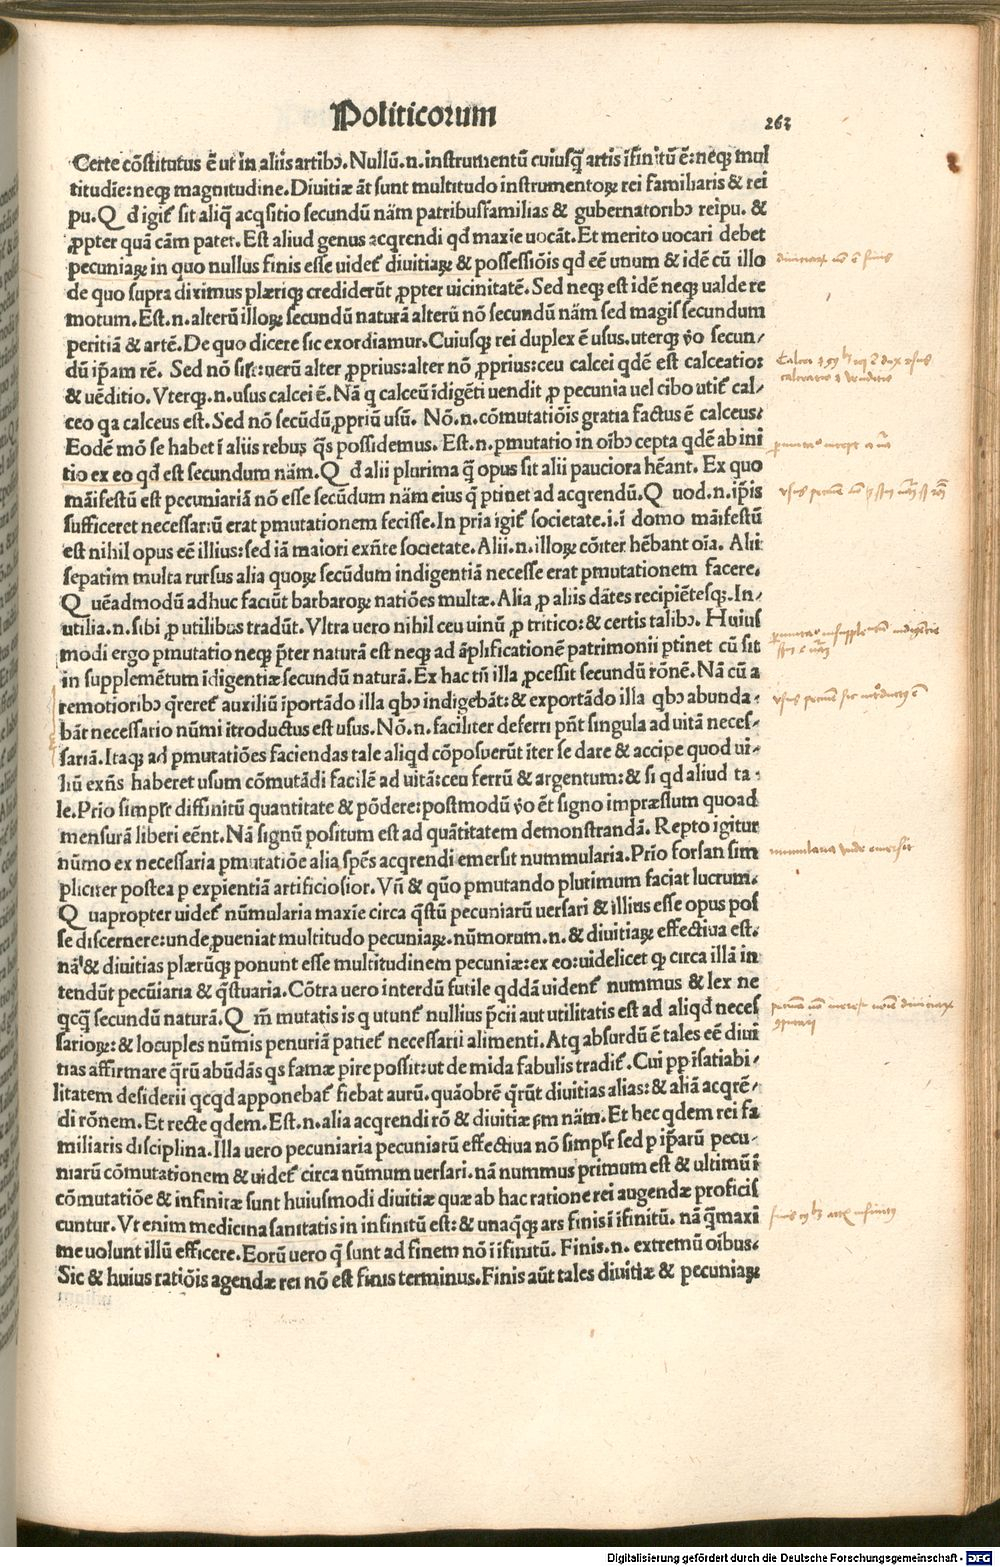 Politicorum
263
Certe cõstitutus ẽ ut in aliis artibꝰ. Nullũ.n. instrumentũ cuiusq̃ artis ĩfinitũ ẽ: neqꝫ mul
titudĩe: neqꝫ magnitudine. Diuitiæ ãt sunt multitudo instrumentoꝝ rei familiaris & rei
pu. Q d̃ igit̃ sit aliq̃ acq̃sitio secundũ nãm patribusfamilias & gubernatoribꝰ reipu. &
ꝓpter quã cãm patet. Est aliud genus acqrendi qd̃ maxĩe uocãt. Et merito uocari debet
pecuniaꝝ in quo nullus finis esse uidet̃ diuitiaꝝ & possessiõis qd̃ eẽ unum & idẽ cũ illo
diuitiarꝫ nõ ẽ finis
de quo supra diximus plæriqꝫ crediderũt ꝓpter uicinitatẽ. Sed neqꝫ est idẽ neqꝫ ualde re
motum. Est.n. alterũ illoꝝ secundũ naturã alterũ nõ secundũ nãm sed magis secundum
peritiã & artẽ. De quo dicere sic exordiamur. Cuiusqꝫ rei duplex ẽ usus. uterqꝫ ṽo secun/
dũ ip̃am rẽ. Sed nõ sil̃r: uerũ alter ꝓprius: alter nõ ꝓprius: ceu calcei qdẽ est calceatio:
& uẽditio. Vterqꝫ.n. usus calcei ẽ. Nã q calceũ ĩdigẽti uendit ꝓ pecunia uel cibo utit̃ cal/
calceatio & venditio
ceo qa calceus est. Sed nõ secũdũ ꝓpriũ usũ. Nõ.n. cõmutatiõis gratia factus ẽ calceus:
Eodẽ mõ se habet ĩ aliis rebus q̃s possidemus. Est.n. ꝑmutatio in oĩbꝰ cepta qdẽ ab ini
tio ex eo qd̃ est secundum nãm. Q d̃ alii plurima q̃ opus sit alii pauciora hẽant. Ex quo
mãifestũ est pecuniariã nõ esse secũdum nãm eius q̃ ꝑtinet ad acqrendũ. Q uod.n. ip̃is
sufficeret necessarũ erat ꝑmutationem fecisse. In pria igit̃ societate.i. ĩ domo mãifestũ
est nihil opus eẽ illius: sed iã maiori exñte societate. Alii.n. illoꝝ cõiter hẽbant oĩa. Alii
sepatim multa rursus alia quoꝝ secũdum indigentiã necesse erat ꝑmutationem facere.
Q uẽadmodũ adhuc faciũt barbaroꝝ natiões multæ. Alia ꝓ aliis dãtes recipiẽtesqꝫ. In/
utilia.n. sibi ꝓ utilibus tradũt. Vltra uero nihil ceu uinũ ꝓ tritico: & certis talibꝰ. Huius
modi ergo ꝑmutatio neqꝫ p̃ter naturã est neqꝫ ad ãplificationẽ patrimonii ꝑtinet cũ sit
in supplemẽtum ĩdigentiæ secũdũ naturã. Ex hac tñ illa ꝓcessit secũdũ rõnẽ. Nã cũ a
remotioribꝰ q̃reret̃ auxiliũ ĩportãdo illa qbꝰ indigebãt: & exportãdo illa qbꝰ abunda/
bãt necessario nũmi ĩtroductus est usus. Nõ.n. faciliter deferri pñt singula ad uitã neces/
sariã. Itaqꝫ ad ꝑmutatiões faciendas tale aliqd cõposuerũt ĩter se dare & accipe quod ui/
liũ exñs haberet usum cõmutãdi facilẽ ad uitã: ceu ferrũ & argentum: & si qd aliud ta/
le. Prio simplr̃ diffinitũ quantitate & põdere: postmodũ ṽo ẽt signo impræssum quoad
mensurã liberi eẽnt. Nã signũ positum est ad quãtitatem demonstrandã. Repto igitur
nũmo ex necessaria ꝑmutatiõe alia spẽs acqrendi emersit nummularia. Prĩo forsan sim
nummularia vnde emersit
pliciter postea ꝑ expientiã artificiosior. Vñ & quo ꝑmutando plurimum faciat lucrum.
Q uapropter uidet̃ nũmularia maxĩe circa q̃stũ pecuniarũ uersari & illius esse opus pos
se discernere: unde ꝓueniat multitudo pecuniaꝝ. nũmorum.n. & diuitiaꝝ effectiua est.
nã & diuitias plærũqꝫ ponunt esse multitudinem pecuniæ: ex eo: uidelicet qꝫ circa illã in
tendũt pecũiaria & q̃stuaria. Cõtra uero interdũ futile qddã uident̃ nummus & lex ne
qcq̃ secundũ naturã. Q m̃ mutatis is q utunt̃ nullius p̃cii aut utilitatis est ad aliqd̃ neces
sarioꝝ: & locuples nũmis penuriã patiet̃ necessarii alimenti. Atq absurdũ ẽ tales eẽ diui
tias affirmare q̃rũ abũdãs qs famæ pire possit: ut de mida fabulis tradit̃. Cui ꝑp ĩsatiabi/
litatem desiderii qcqd apponebat̃ fiebat aurũ. quãobrẽ q̃rũt diuitias alias: & aliã acqrẽ/
di rõnem. Et recte qdem. Est.n. alia acqrendi rõ & diuitiæ ẜm nãm. Et hec qdem rei fa
miliaris disciplina. Illa uero pecuniaria pecuniarũ effectiua nõ simplr̃ sed ꝑ ip̃arũ pecu/
niarũ cõmutationem & uidet̃ circa nũmum uersari. nã nummus primum est & ultimũ ĩ
cõmutatiõe & infinitæ sunt huiusmodi diuitiæ quæ ab hac ratione rei augendæ proficis
cuntur. Vt enim medicina sanitatis in infinitũ est: & unaq̃qꝫ ars finis ĩ ĩfinitũ. nã q̃maxi
me uolunt illũ efficere. Eorũ uero q̃ sunt ad finem nõ ĩ ĩfinitũ. Finis.n. extremũ oĩbus.
Sic & huius ratiõis agendæ rei nõ est finis terminus. Finis aũt tales diuitiæ & pecuniaꝝ
Digitalisierung gefördert durch die Deutsche Forschungsgemeinschaft - DFG